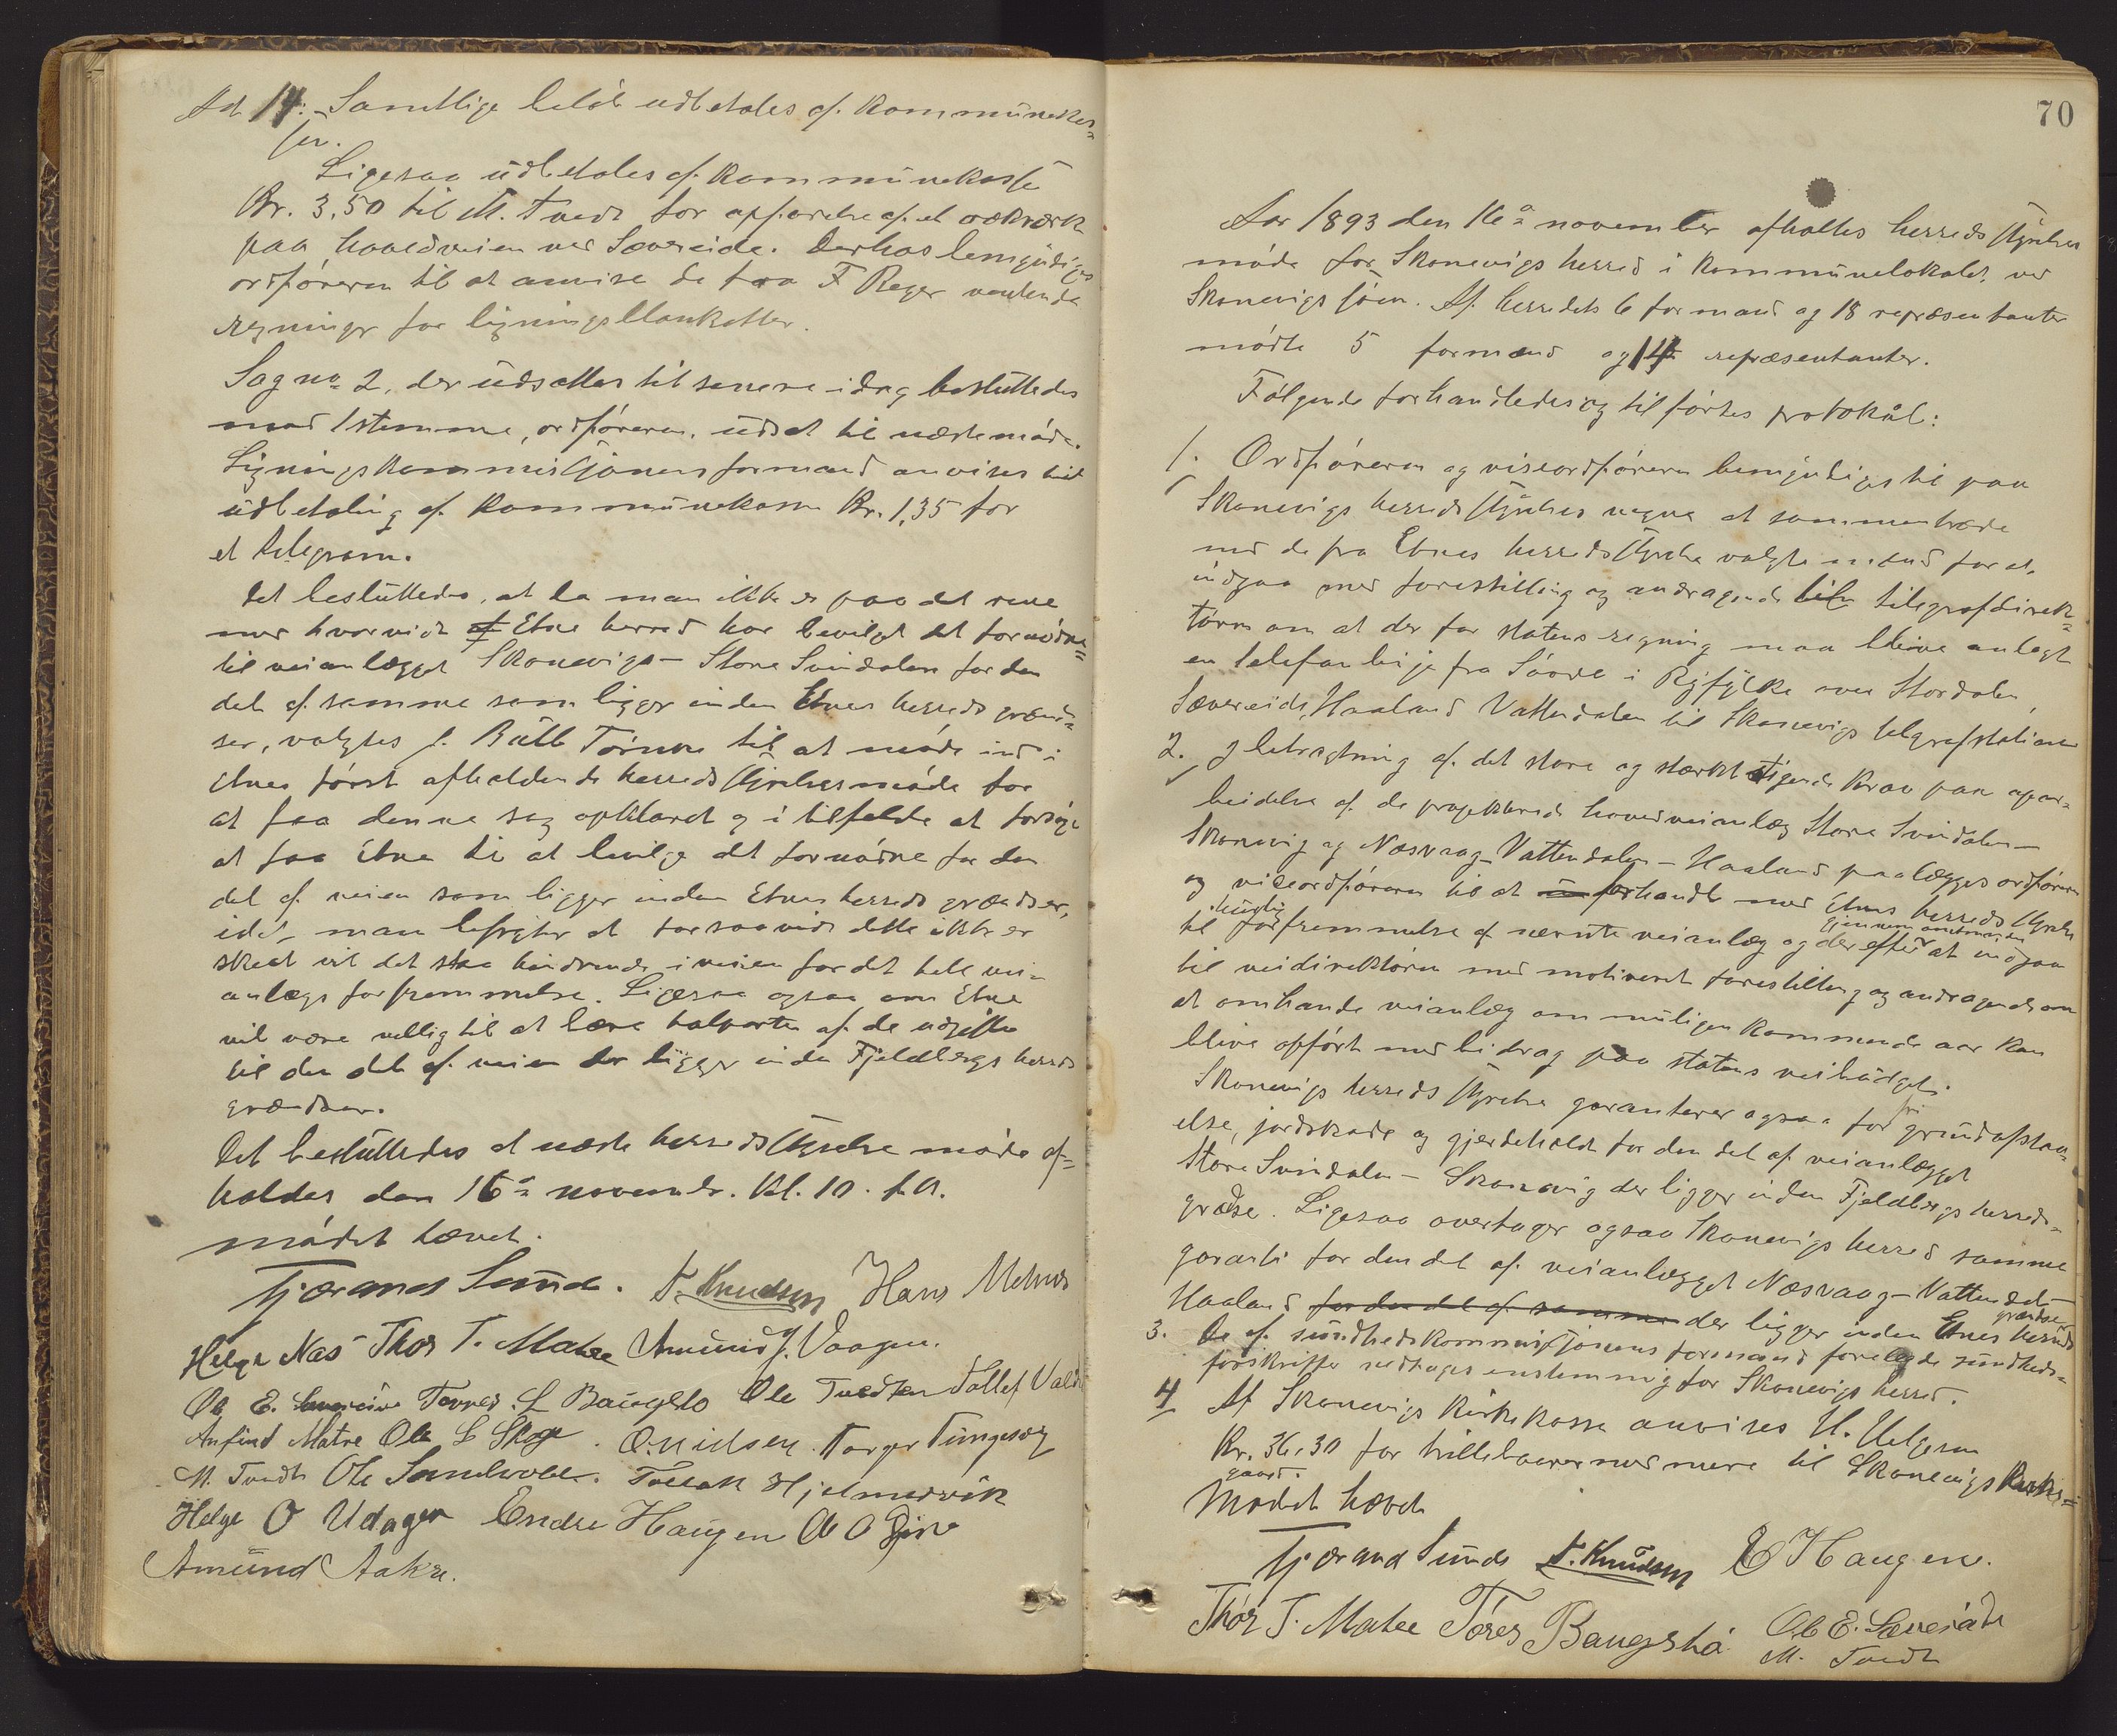 Ad 14. Samtlige beløb udbetales af kommunekas=
sen.
Ligesaa udbetales af kommunekassen
Kr. 3,50 til M. Tvedt for opførelse af et rækværk
paa hovedveien ved Sævereide. Derhos bemyndiges
ordføreren til at anvise de fra F Beyer ventende
regninger for ligningsblanketter.
Sag no 2, der udsattes til senere idag besluttedes
mod 1 stemme, ordføreren, udsat til næste møde.
Ligningskommissjonens formand anvises til
udbetaling af kommunekassen Kr. 1,35 for
et telegram.
Det besluttedes, at da man ikke er paa det rene
med hvorvidt at Etne herred har bevilget det fornødne
til veianlægget Skonevig - Store Svindalen for den
del af samme som ligger inden Etnes herreds grænd=
ser, valgtes J. Bull Tornøe til at møde ind i
Etnes først afholdende herredsstyrelsesmøde for
at faa denne sag opklaret og i tilfælde at forsøge
at faa Etne til at bevilge det fornødne for den
del af veien som ligger inden Etnes herreds grændser,
idet man befrygter at forsaavidt dette ikke er
skeet vil det staa hindrende i veien for det hele vei=
anlægs forfremmelse. Ligesaa ogsaa om Etne
vil være villig til at bære halvparten af de udgifter
til den del af veien der ligger inden Fjeldbergs herreds
grændser.
Det besluttedes at næste herredsstyrelse møde af=
holdes den 16de novembr. Kl. 10 f.m.
mødet hævet.
Tjerand Sunde. T. Knudsen Hans Mehus
Helge Næs Thor T. Matre Amund J. Vaagen.
Ole E. Sævereide Torres L Baugsto Ole Tvedten Tollef Valde
Anfind Matre Ole L Skoge. O. Nilsen Torger Tungesvig
M. Tvedt Ole Sandvolle. Tollak Hjelmervik
Helge O Udager Endre Haugen Ole O
Amund Aakre.
70
Aar 1893 den 16de november afholtes herredsstyrelses
møde for Skonevigs herred i kommunelokalet ved
Skonevigsjøen. Af herredets 6 formænd og 18 repræsentanter
mødte 5 formænd og 14 repræsentanter.
Følgende forhandledes og tilførtes protokol:
1. Ordføreren og viseordføreren bemyndiges til paa
Skonevigs herredsstyrelses vegne at sammentræde
med de fra Etnes herredsstyrelse valgte mænd for at
indgaa med forestilling og andragende til telegrafdirek=
tøren om at der for statens regning maa blive anlagt
en telefonlinje fra Søvde i Ryfylke over Stordalen,
Sævereide, Haaland Vattendalen til Skonevigs telegrafstation
2. I betragtning af det store og stærkt stigende krav paa opar=
beidelse af de projekterede hovedveianlæg Store Svindalen-
Skonevig og Næsvaag-Vattendalen-Haaland paalægges ordføreren
og viseordføreren til at forhandle med Etnes herredsstyrelse
til muglig forfremmelse af nævnte veianlæg og derefter gjennem amtmanden at indgaa
til veidirektøren med motiveret forestilling og andragende om
at omhandlede veianlæg om muligen kommende aar kan
blive opført med bidrag paa statens veibudget.
Skonevigs herredsstyrelse garanterer ogsaa for fri grundafstaa=
else, jordskade og gjerdehold for den del af veianlægget
Store Svindalen - Skonevig der ligger inden Fjeldbergs herreds=
grædse. Ligesaa overtager ogsaa Skonevigs herred samme
garanti for den del af veianlægget Næsvaag-Vattendal-
Haaland for den del af samme der ligger inden Etnes herreds grændser
3. De af sundhedskommissjonens formand forelagde sundheds=
forskrifter vedtages enstemmig for Skonevigs herred.
4 Af Skonevigs kirkekasse anvises H. Helgesen
Kr. 36,30 for trillebaarer med mere til Skonevigs kirke=
gaard.
Mødet hævet
Tjerand Sunde T. Knudsen E Haugen.
Thor T. Matre Torres Baugstø Ole E. Sævereide
M. Tvedt